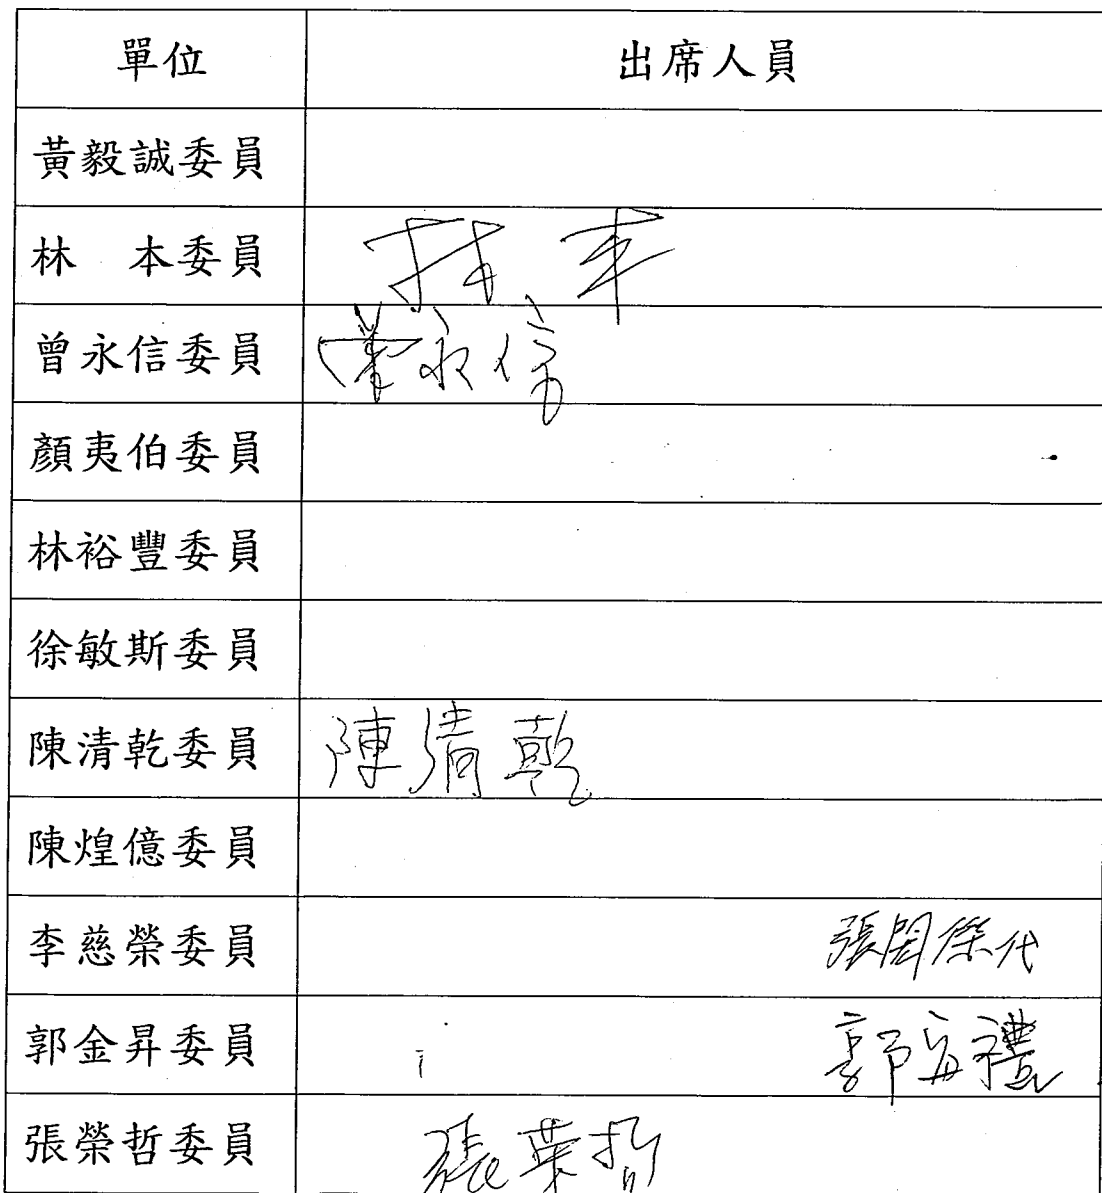 單位 出席人員
黃毅誠委員
林 本委員 林本
曾永信委員 曾永信
顏夷伯委員
林裕豐委員
徐敏斯委員
陳清乾委員 陳清乾
陳煌億委員
李慈榮委員 張閎傑代
郭金昇委員 郭 禮
張榮哲委員 張榮哲